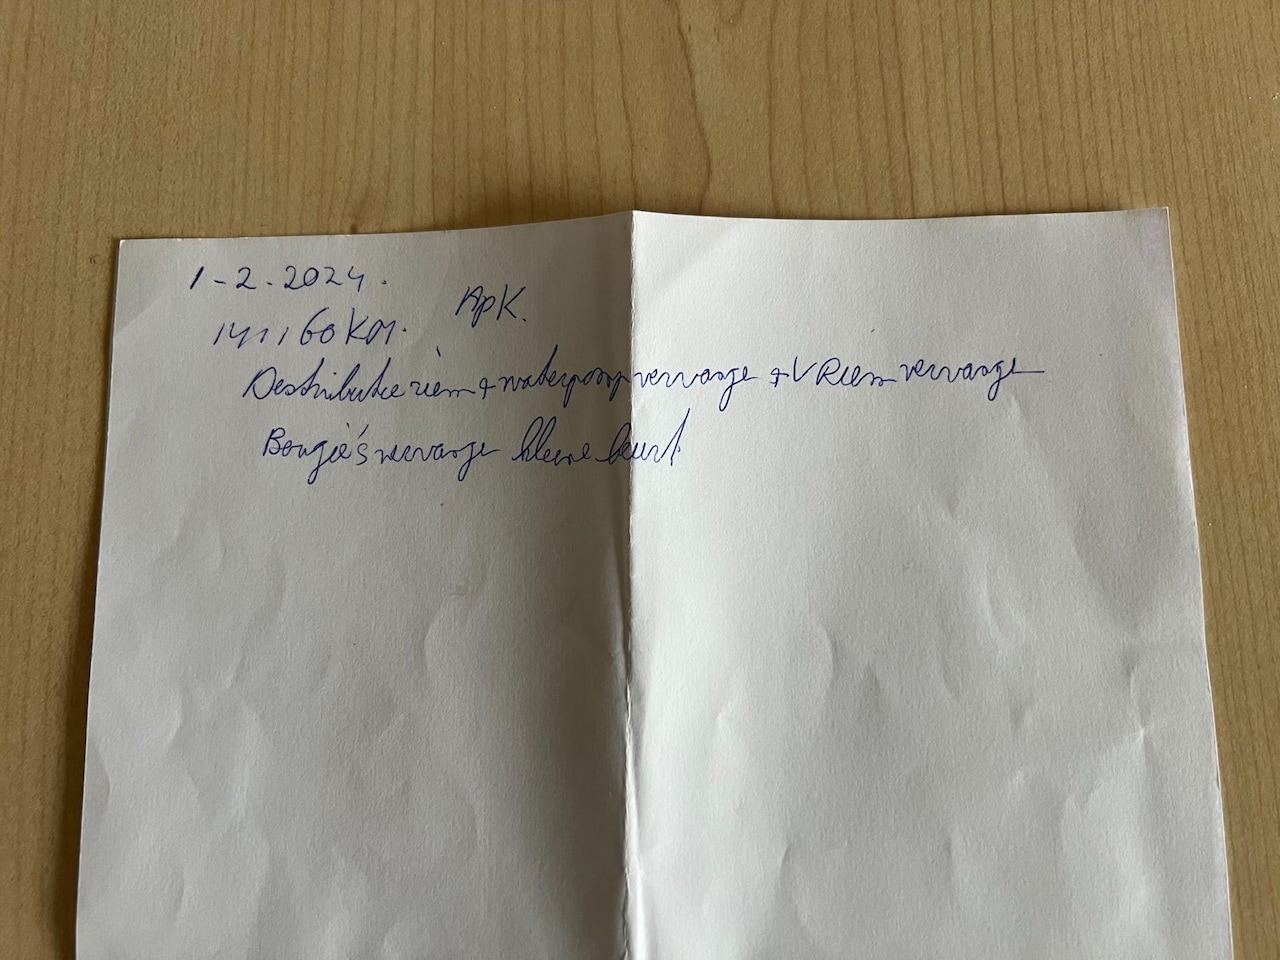 1-2-2024.
141160 km. Apk.
Destributie riem + waterpomp vervange + V Riem vervange
Bougië's vervange kleine beurt